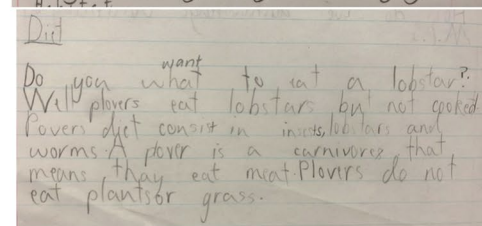 Diet
want
Do you what to eat a lobstar?
Well plovers eat lobstars but not cooked
Povers diet consist in insects, lobstars and
worms. A plover is a carnivores that
means thay eat meat. Plovers do not
eat plants or grass.